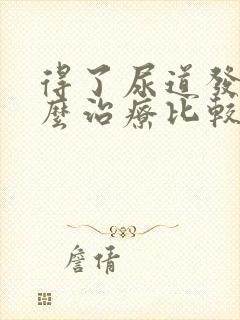 得了尿道發
麼治療比較
詹倩